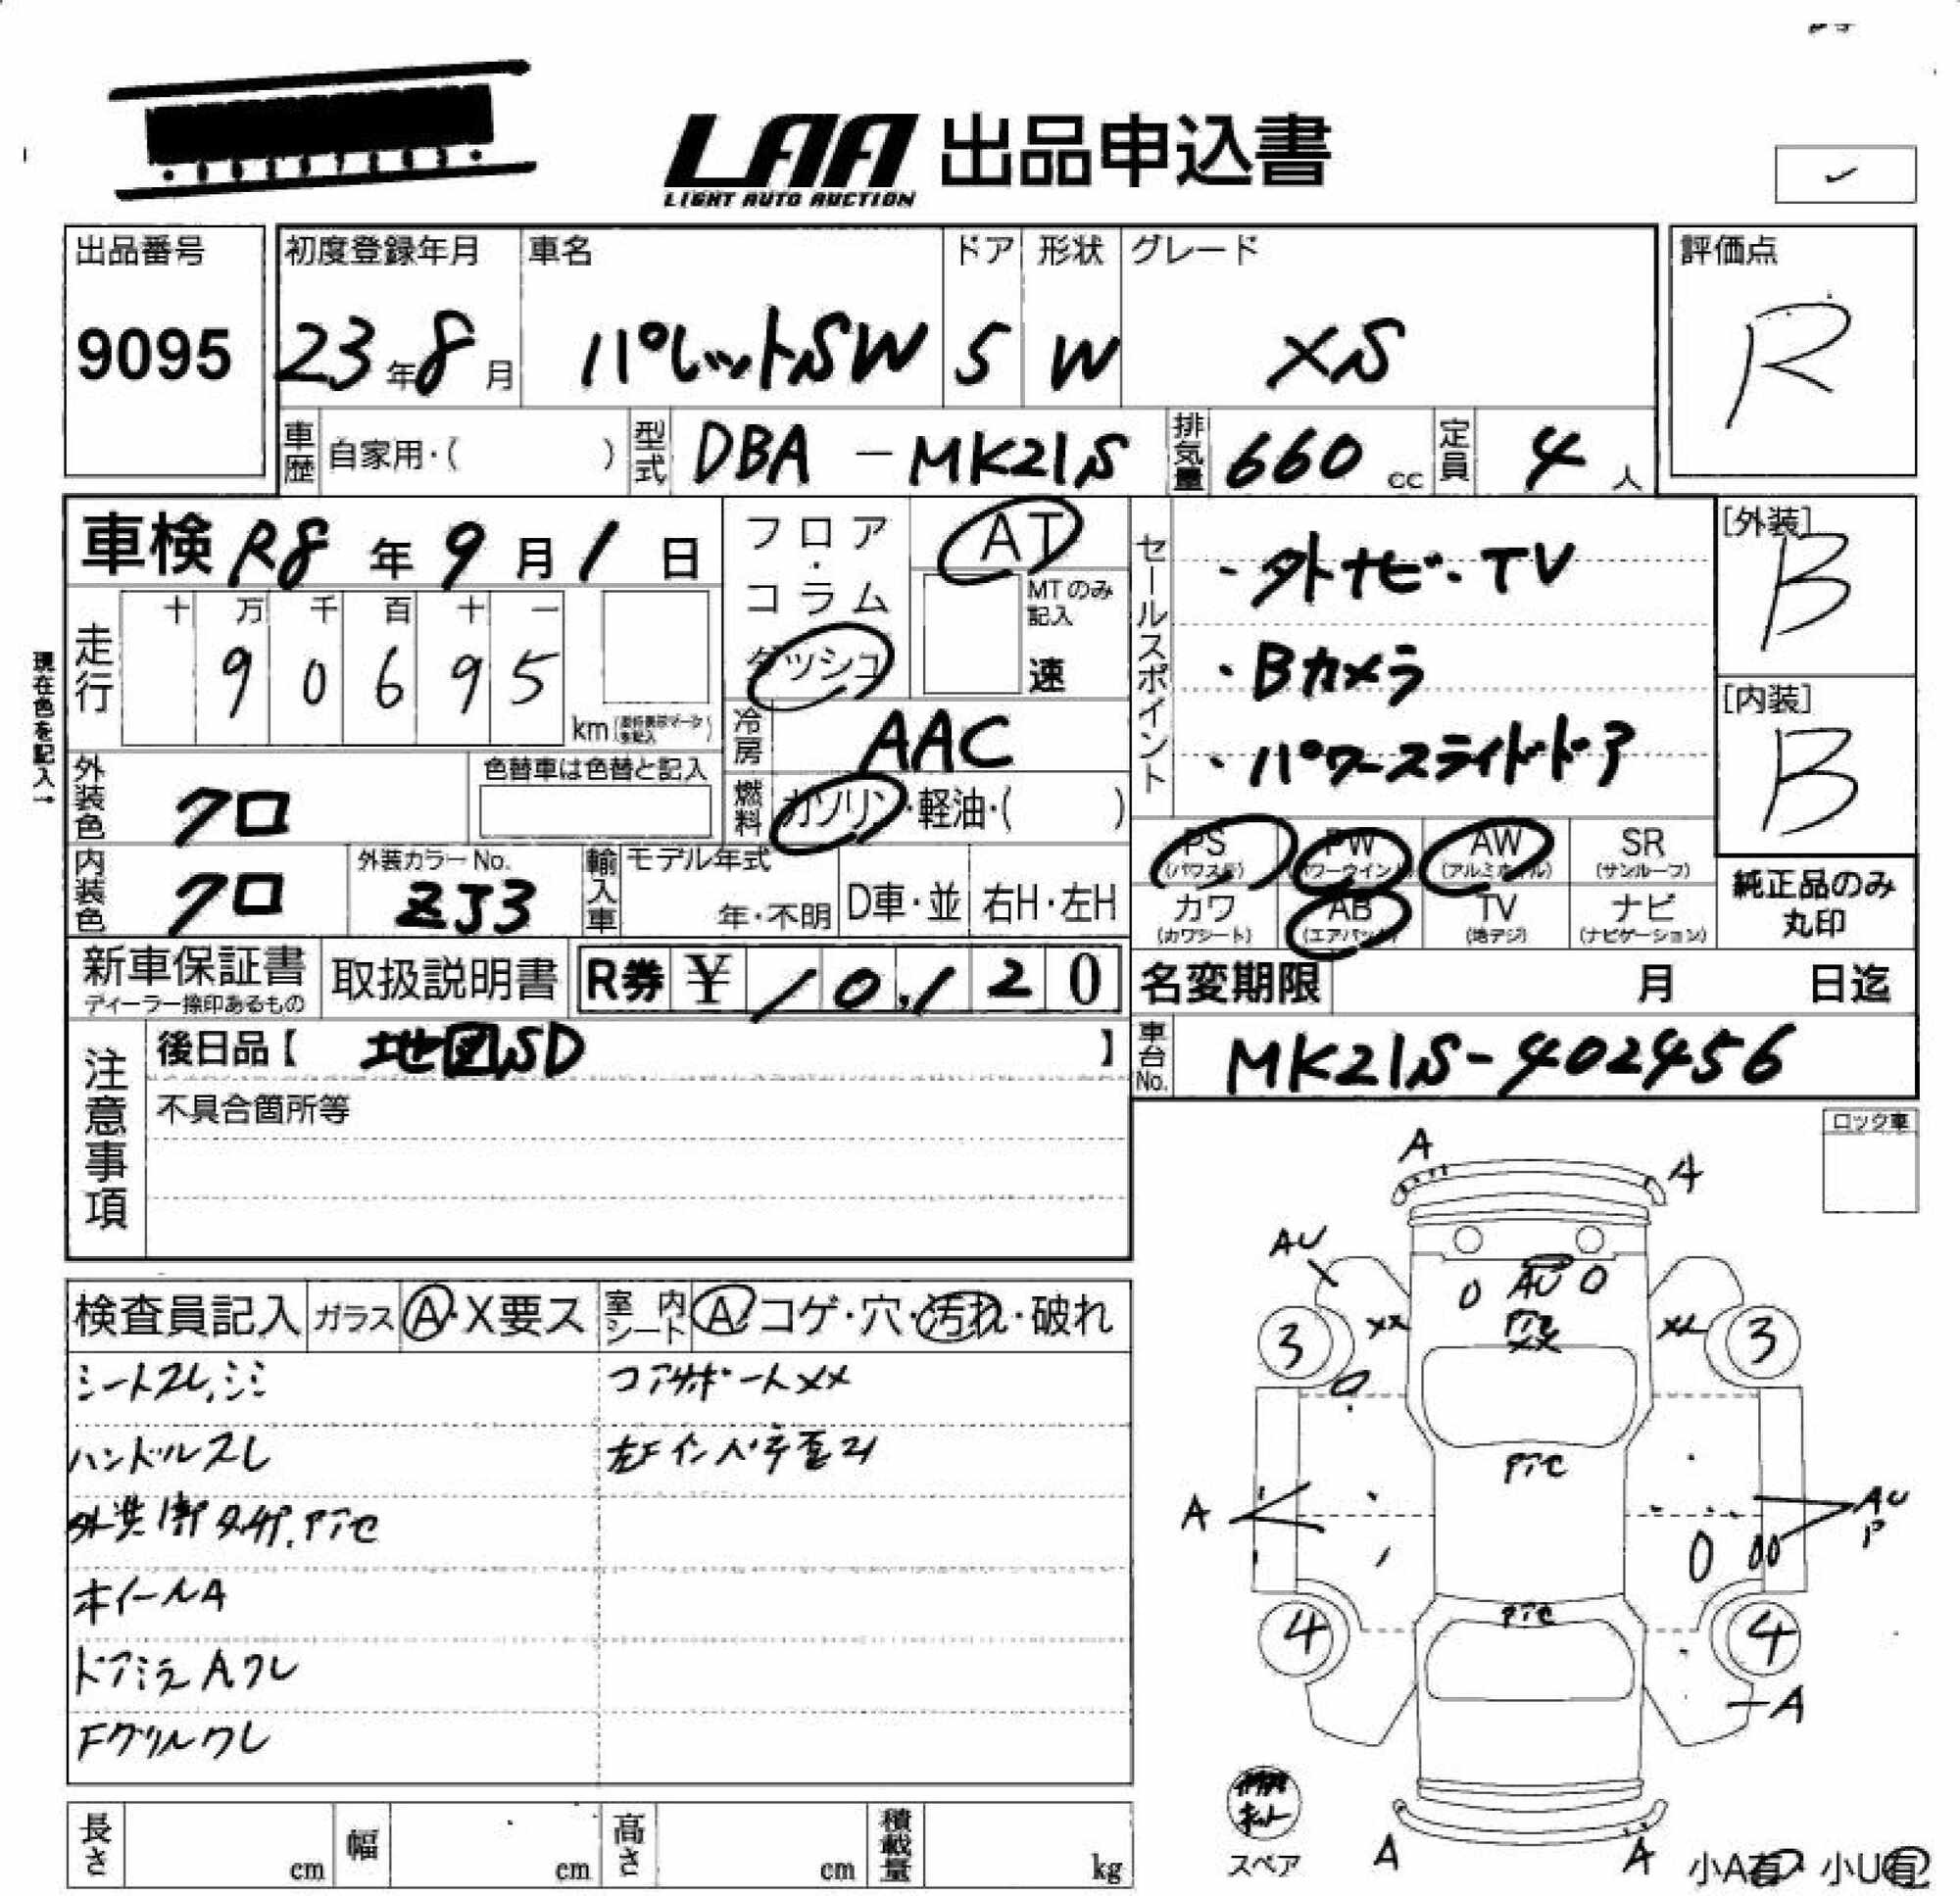 LAA 出品申込書
LIGHT AUTO AUCTION
出品番号
9095
初度登録年月
23年8月
車名
パレットSW
ドア
5
形状
W
グレード
XS
評価点
R
車歴 自家用・( )
型式 DBA-MK21S
排気量 660 cc
定員 4 人
車検 R8年9月1日
フロア・コラム ダッシュ
AT
MTのみ記入
速
セールスポイント
・外ナビ・TV
・Bカメラ
・パワースライドドア
[外装]
B
[内装]
B
現在色を記入→
走行 十 万 千 百 十 一
9 0 6 9 5
km
冷房 AAC
外装色 クロ
色替車は色替と記入
燃料 ガソリン・軽油・( )
内装色 クロ
外装カラーNo.
ZJ3
輸入車 モデル年式
年・不明
D車・並
右H・左H
PS AW SR
(パワステ) (アルミホイル) (サンルーフ)
PW
カワ AB TV ナビ
(カワシート) (エアバック) (地デジ) (ナビゲーション)
純正品のみ
丸印
新車保証書
ディーラー捺印あるもの
取扱説明書
R券 ¥ 10,120
名変期限 月 日迄
注意事項
後日品【 地図SD 】
車台No. MK21S-402456
不具合箇所等
ロック車
検査員記入 ガラス A・X要ス
室内シート A・コゲ・穴・汚れ・破れ
シートスレ,シミ
コアサポートXX
ハンドルスレ
ホイールA
ドアミラ Aワレ
Fグリルワレ
A
A
AU
AU
3
XX
3
A
AU
P
4
4
A
スペア
A
A
小A有・小U有
長さ cm
幅 cm
高さ cm
積載量 kg